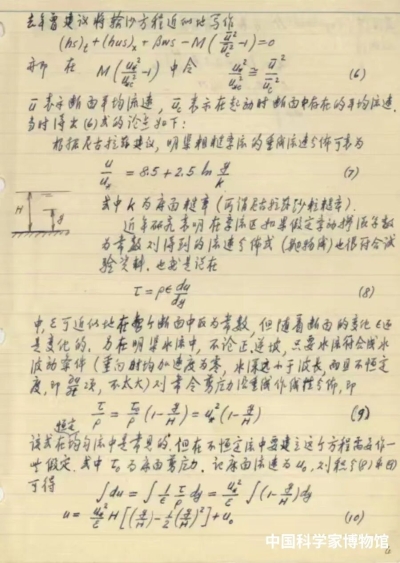 去年曾建议将输沙方程近似地写作
(hs)t + (hus)x + βws - M(u*²/u*c² - 1) = 0
亦即 在 M(u*²/u*c² - 1) 中令 u*²/u*c² ≅ ū²/ūc² (6)
ū 表示断面平均流速, ūc 表示在起动时断面中存在的平均流速.
当时得出(6)式的论点如下:
根据尼古拉兹建议, 明渠粗糙紊流的垂线流速分佈可表为
u/u* = 8.5 + 2.5 ln y/k (7)
H y
式中 k 为床面糙率 (可谓尼古拉兹沙粒糙率).
近年研究表明在紊流区如果假定紊动掺混系数
为常数, 则得到的流速分佈式 (抛物线) 也很符合试
验资料. 也就是说在
τ = ρε du/dy (8)
中, ε可近似地在每个断面中取为常数, 但随着断面的变化 ε还
是变化的. 另在明渠水流中, 不论正逆坡, 只要水流符合浅水
波动条件 (垂向时均加速度为零, 水深远小于波长, 而且不恒定
度, 即 项, 不太大) 则常令剪应力沿垂线作线性分佈, 即
τ/ρ = τ₀/ρ (1 - y/H) = u*² (1 - y/H) (9)
恒定
该式在均匀流中是常见的, 但在不恒定流中要建立这个方程尚需作一
些假定. 式中 τ₀ 为床面剪应力. 记床面流速为 u₀, 则积分(8)
可得
∫du = ∫ 1/ε τ/ρ dy = u*²/ε ∫(1 - y/H)dy
u = u*²/ε H[(y/H) - 1/2 (y/H)²] + u₀ (10)
中国科学家博物馆